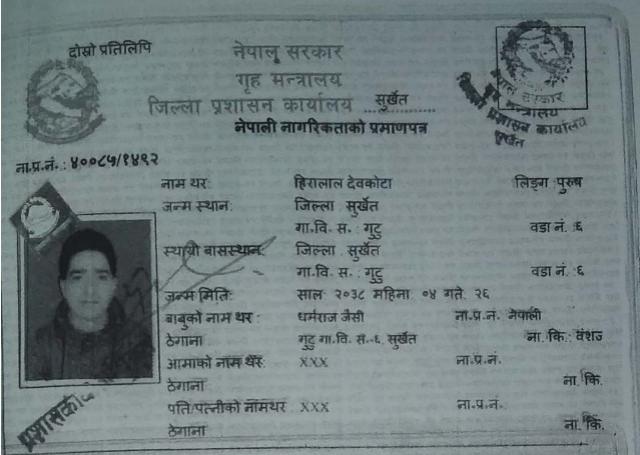 दोस्रो प्रतिलिपि
नेपाल सरकार
गृह मन्त्रालय
जिल्ला प्रशासन कार्यालय सुर्खेत
नेपाली नागरिकताको प्रमाणपत्र
नेपाल सरकार
गृह मन्त्रालय
जिल्ला प्रशासन कार्यालय
सुर्खेत
ना.प्र.नं.: ४००८५/१४९२
नाम थर: हिरालाल देवकोटा लिङ्ग: पुरुष
जन्म स्थान: जिल्ला : सुर्खेत
गा.वि.स.: गुटु वडा नं.:६
स्थायी बासस्थान: जिल्ला : सुर्खेत
गा.वि.स.: गुटु वडा नं.:६
जन्म मिति: साल: २०३८ महिना: ०४ गते: २६
बाबुको नाम थर : धर्मराज जैसी ना.प्र.नं. नेपाली
ठेगाना गुटु गा.वि. स.-६, सुर्खेत ना. कि.: वंशज
आमाको नाम थर: XXX ना.प्र.नं.
ठेगाना ना. कि.
पति/पत्नीको नामथर : XXX ना.प्र.नं.
ठेगाना ना. कि.